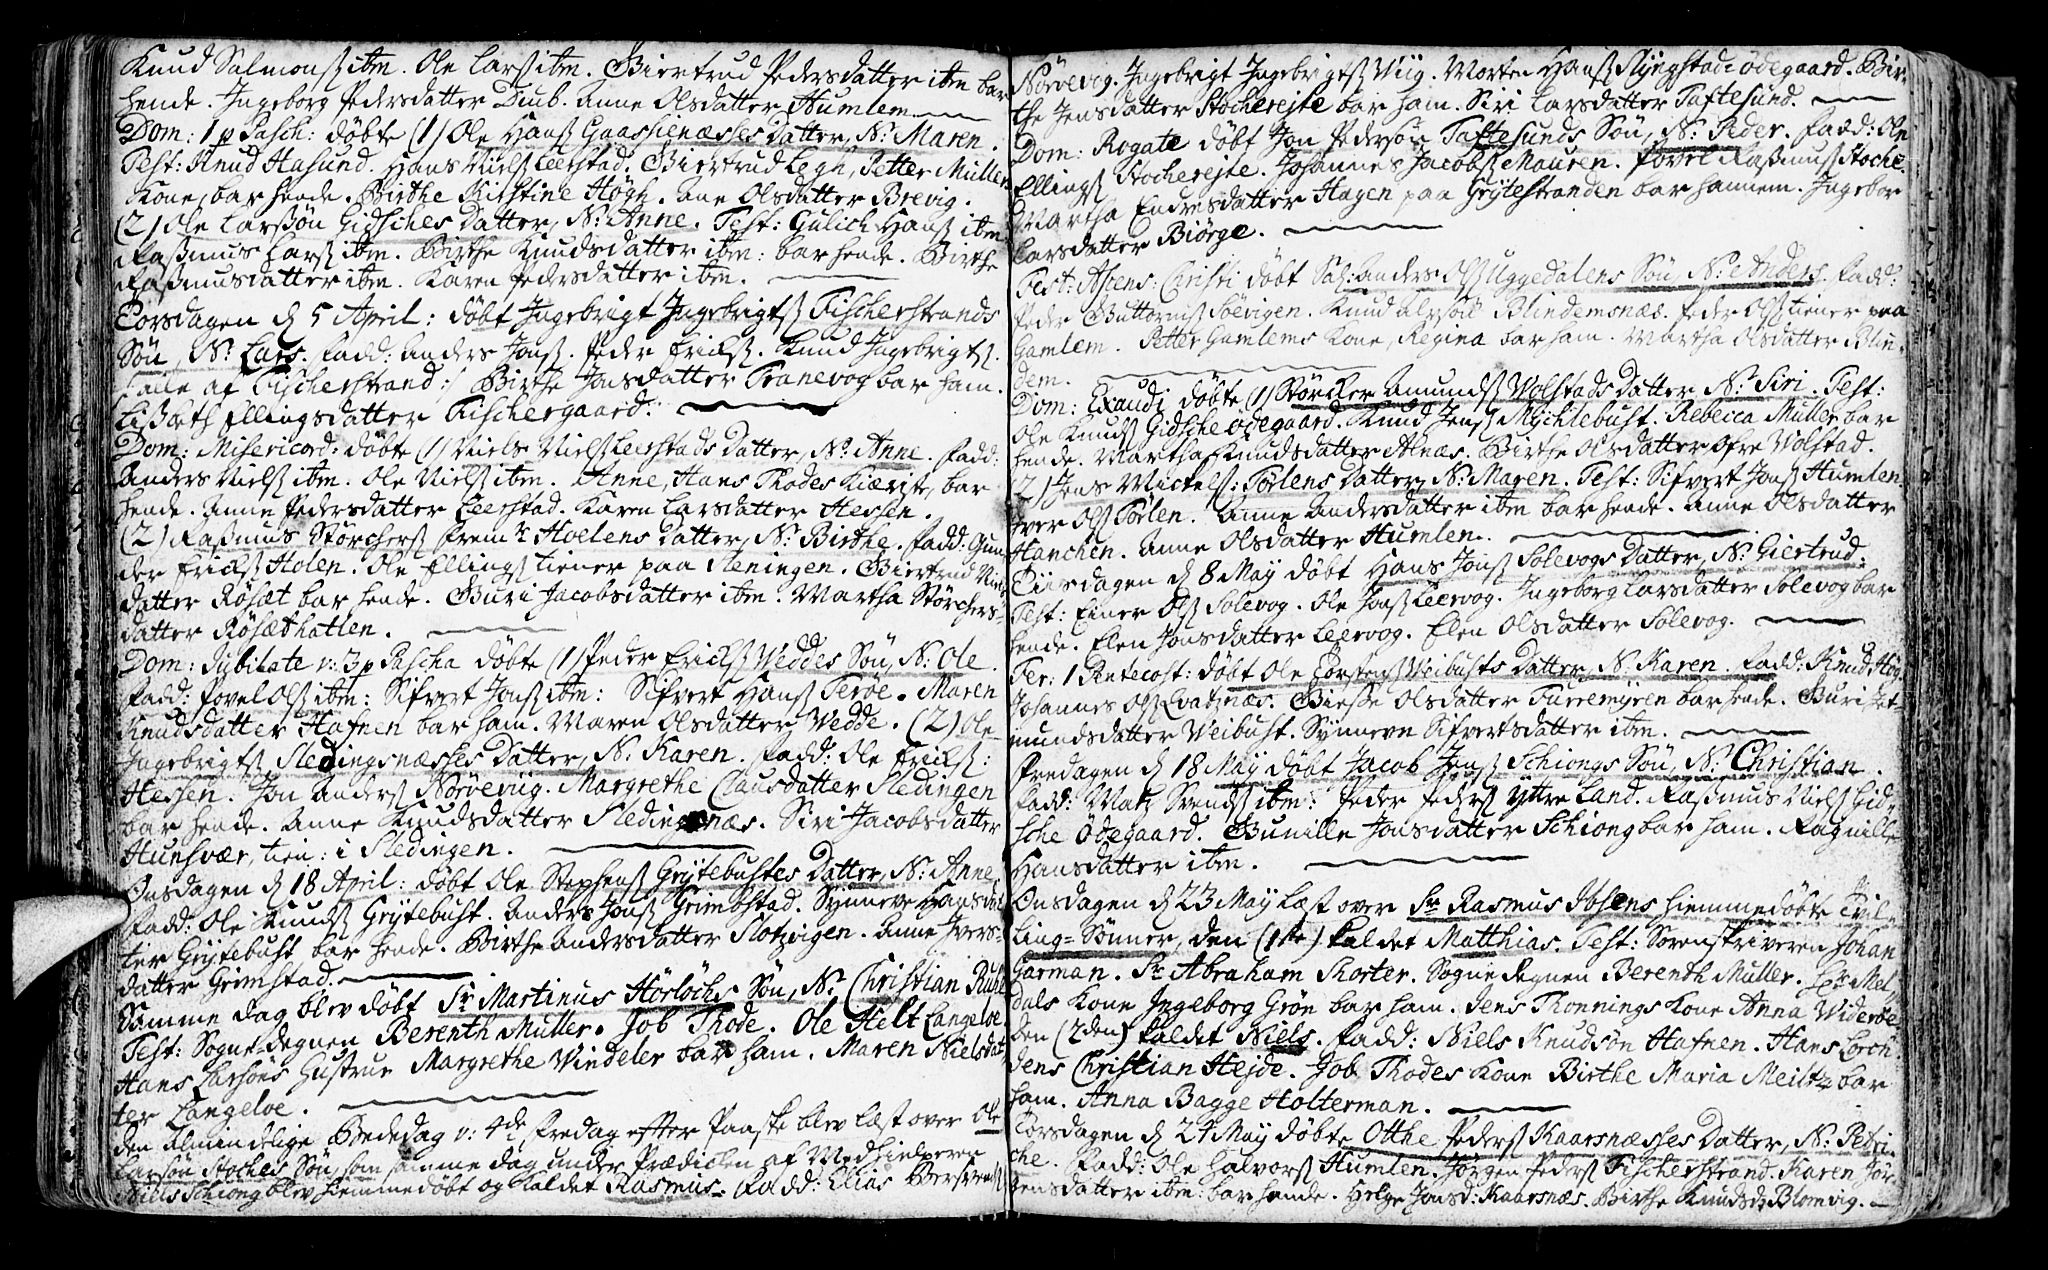 Knud Salmonss ibm. Ole Larss ibm. Giertrud Pedersdatter ibm bar
hende. Ingeborg Pedersdatter Diub. Anne Olsdatter Humlem.
Dom: 1 p Pasch: döbte (1) Ole Hanss Gaaseienæsses Datter, N: Maren.
Test: Knud Hasund. Hans Nielss Leerstad. Giertrud Legh, Petter Müllers
Kone, bar hende. Birthe Kirstine Högh. Ane Olsdatter Brevig.
(2) Ole Larssön Gidsches Datter, N: Anne. Test: Gulich Hanss ibm
Rasmus Larss ibm. Birthe Knudsdatter ibm: bar hende. Birthe
Rasmusdatter ibm. Karen Pedersdatter ibm.
Torsdagen d 5 April: döbt Ingebrigt Ingebrigtss Fischerstrands
Sön, N: Lars. Fadd: Anders Jonss. Peder Erichss. Knud Ingebrigtss.
/: alle af Fischerstrand :/ Birthe Jonsdatter Tranevog bar ham.
Lisbeth Ellingsdatter Fischergaard.
Dom: Misericord: döbte (1) Niels Nielss Leerstads Datter, N: Anne. Fadd:
Anders Nielss ibm. Ole Nielss ibm. Anne, Hans Thodes Kiæriste, bar
hende. Anne Pedersdatter Leerstad. Karen Larsdatter Hessen.
(2) Rasmus Störchers Frem Hoelens Datter, N: Birthe. Fadd: Gun
der Erichss Holen. Ole Ellingss tiener paa Steningen. Giertrud Niels
datter Röset bar hende. Guri Jacobsdatter ibm. Martha Störchers-
datter Rösethatlen.
Dom: Jubilate v: 3 p Pascha döbte (1) Peder Erichss Weddes Sön, N: Ole.
Fadd: Povel Olss ibm: Sifvert Jonss ibm: Sifvert Hanss Teröe. Maren
Knudsdatter Hafnen bar ham. Maren Olsdatter Wedde. (2) Ole
Ingebrigtss Sledingsnæsses Datter, N: Karen. Fadd: Ole Erichss:
Hessen. Jon Anderss Nörvevüg. Margrethe Clausdatter Sledingen
bar hende. Anne Knudsdatter Sledingsnæs. Siri Jacobsdatter
Hunsvær, tien: i Sledingen.
Onsdagen d 18 April: döbt Ole Stephenss Grytebustes Datter, N: Anne
Fadd: Ole Knudss Grytebust. Anders Jonss Grimbstad. Synneve Hansdat
ter Grytebust bar hende. Birthe Andersdatter Slotzvigen. Anne Ivers-
datter Grimstad.
Samme dag blev döbt Sr Martinus Hörlöchs Sön, N: Christian Rube
Test: Sogne-Degnen Berenth Müller. Job Thode. Ole Helt Langeloe.
Hans Larsöns Hustrue Margrethe Windeler bar ham. Maren Nielsdat
ter Langeloe.
Den Almindelige Bededag v: 4de Fredag efter Paaske blev læst over Ole
Larsön Stoches Sön, som samme dag under Prædichen af Medhielperen
Niels Schiong blev hiemmedöbt og kaldet Rasmus. Fadd: Elias
Nörvevig. Ingebrigt Ingebrigtss Wiig. Morten Hanss Slyngstad Ödegaard. Bir-
the Jensdatter Stocherejte bar ham. Siri Larsdatter Taftesund.
Dom: Rogate döbt Jon Pedersön Taftesunds Sön, N: Peder. Fadd: Ole
Ellingss Stocherejte. Johannes Jacobss Mauren. Povel Rasmuss Stoche.
Martha Endresdatter Hagen paa Grytestranden bar hannem. Ingebor
Larsdatter Biörge.
Fest: Ascens: Christi döbt Sal: Anders Olss Uggedalens Sön, N: Anders. Fadd:
Peder Guttormss Söevigen. Knud Blindemsnæs. Peder Olss tiener paa
Gamlem. Petter Gamlems Kone, Regina bar ham. Martha Olsdatter Blin-
dem.
Dom: Exaudi döbte (1) Störcker Amundss Wolstads Datter, N: Siri. Test:
Ole Knudss Gidsche Ödegaard. Knud Jenss Mychlebust. Rebecca Müller bar
hende. Martha Knudsdatter Alnæs. Birthe Olsdatter Öfre Wolstad.
2) Jens Mickelss: Törlens Datter, N: Maren. Test: Sifvert Jonss Humlen
Iver Olss Törlen. Anne Andersdatter ibm bar hende. Anne Olsdatter
Hanchen. Anne Olsdatter Humlen.
Tiirsdagen d 8 May döbt Hans Jonss Solevogs Datter, N: Giertrud.
Test: Einer Olss Solevog. Ole Jonss Leervog. Ingeborg Larsdatter Solevog bar
hende. Elen Jonsdatter Leervog. Elen Olsdatter Solevog.
Fer: 1 Pentecost: döbt Ole Torstenss Weibusts Datter, N: Karen. Fadd: Knud Hög.
Johannes Olss Qvatznæs. Giertrud Olsdatter Turremyren bar hende. Guri Jet-
mundsdatter Weibust. Synneve Sifvertsdatter ibm.
Fredagen d 18 May döbt Jacob Jenss Schiongs Sön, N: Christian.
Fadd: Matz Svendss ibm: Peder Pederss Yttre Land. Rasmus Nielss Gid-
sche Ödegaard. Gunille Jonsdatter Schiong bar ham. Ragnille
Hansdatter ibm.
Onsdagen d 23 May læst over Sr Rasmus Ibsens hiemmedöbte Tvil-
ling-Sönner, den (1ste) kaldet Matthias. Test: Sorenskriveren Johan
Garman. Sr Abraham Shorter. Sogne degnen Berenth Müller. Mel-
dals Kone Ingeborg Grön bar ham. Jens Thonnings Kone Anna Wideröe
Den (2den) kaldet Niels. Fadd: Niels Knudsön Hafnen. Hans Loren-
dens Christian Hejde. Job Thodes Kone Birthe Maria Meilt bar
ham. Anna Bagge Holterman.
Torsdagen d 24 May döbte Otthe Pederss Kaarsnæsses Datter, N: Petri-
che. Fadd: Ole Halvorss Humlen. Jörgen Pederss Fischerstrand. Karen Jör-
gensdatter ibm: bar hende. Helge Jonsd: Kaarsnæs. Birthe Knudsd: Blomvig.